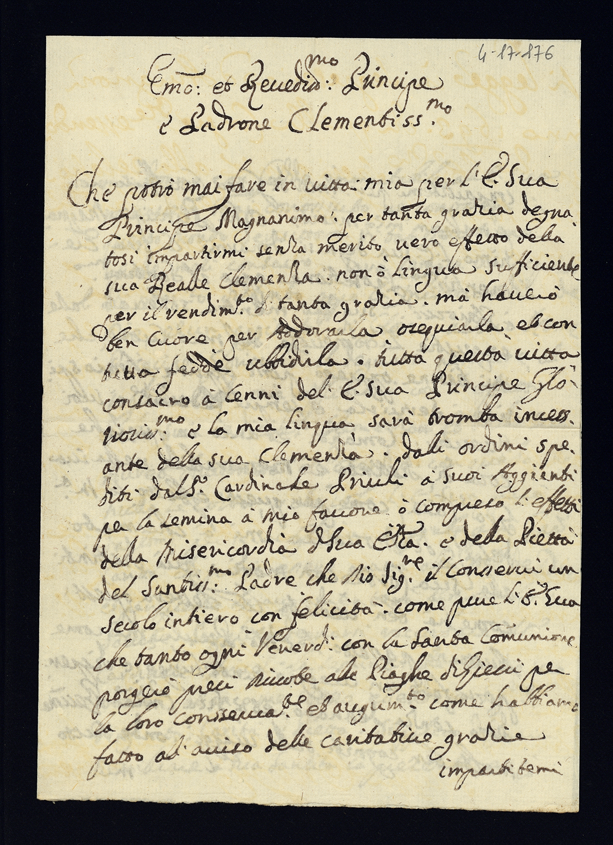 4-17-176
Emo: et Revedismo: Principe
e Padrone Clementiss:mo
Che potrò mai fare in vitta mia per l'E. Sua
Principe Magnanimo: per tanta grazia degna
tosi impartirmi senza merito vero effetto della
sua Realle Clemenza. non ò Lingua suficiente
per il rendim:to di tanta grazia. mà haverò
ben Cuore per adorarla osequiarla et con
tutta feddè ubbidirla. tutta questa vitta
consacro à Cenni del E. Sua Principe Glo-
riosis:mo e la mia lingua sarà tromba incess-
ante della sua Clemenza. dali ordini spe-
diti dal S. Cardinale Priuli à suoi Aggienti
per la semina à mio favore ò compreso l'effetti
della Misericordia d Sua Em̃a. e della Piettà
del Santiss:mo Padre che Dio Sig:re il Conservi un
secolo intiero con felicità. come pure l'E. Sua
che tanto ogni Venerdì con la Santa Comunione
porgerò preci alle Piaghe di Giesù per
la loro conserva:ne et augum:to come habbiamo
fatto al aviso delle caritative grazie
impartitemi